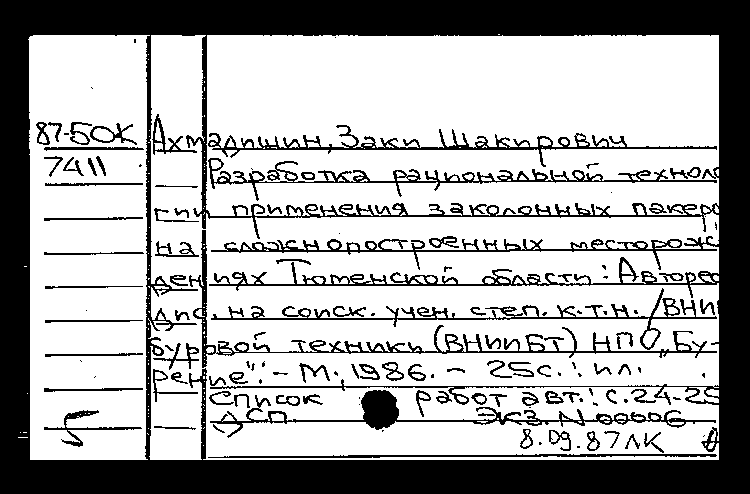 87-50К Ахмадишин, Заки Шакирович
7411 Разработка рациональной техноло
гии применения заколонных пакеро
на сложнопостроенных месторож
дениях Тюменской области: Авторе
дис. на соиск. учен. степ. к.т.н. /ВНИ
буровой техники (ВНИИБТ) НПО „Бу-
рение". - М., 1986. - 25с.: ил.
Список работ авт.: с.24-25
5 ДСП. Экз. N 00006
8.09.87 ЛК